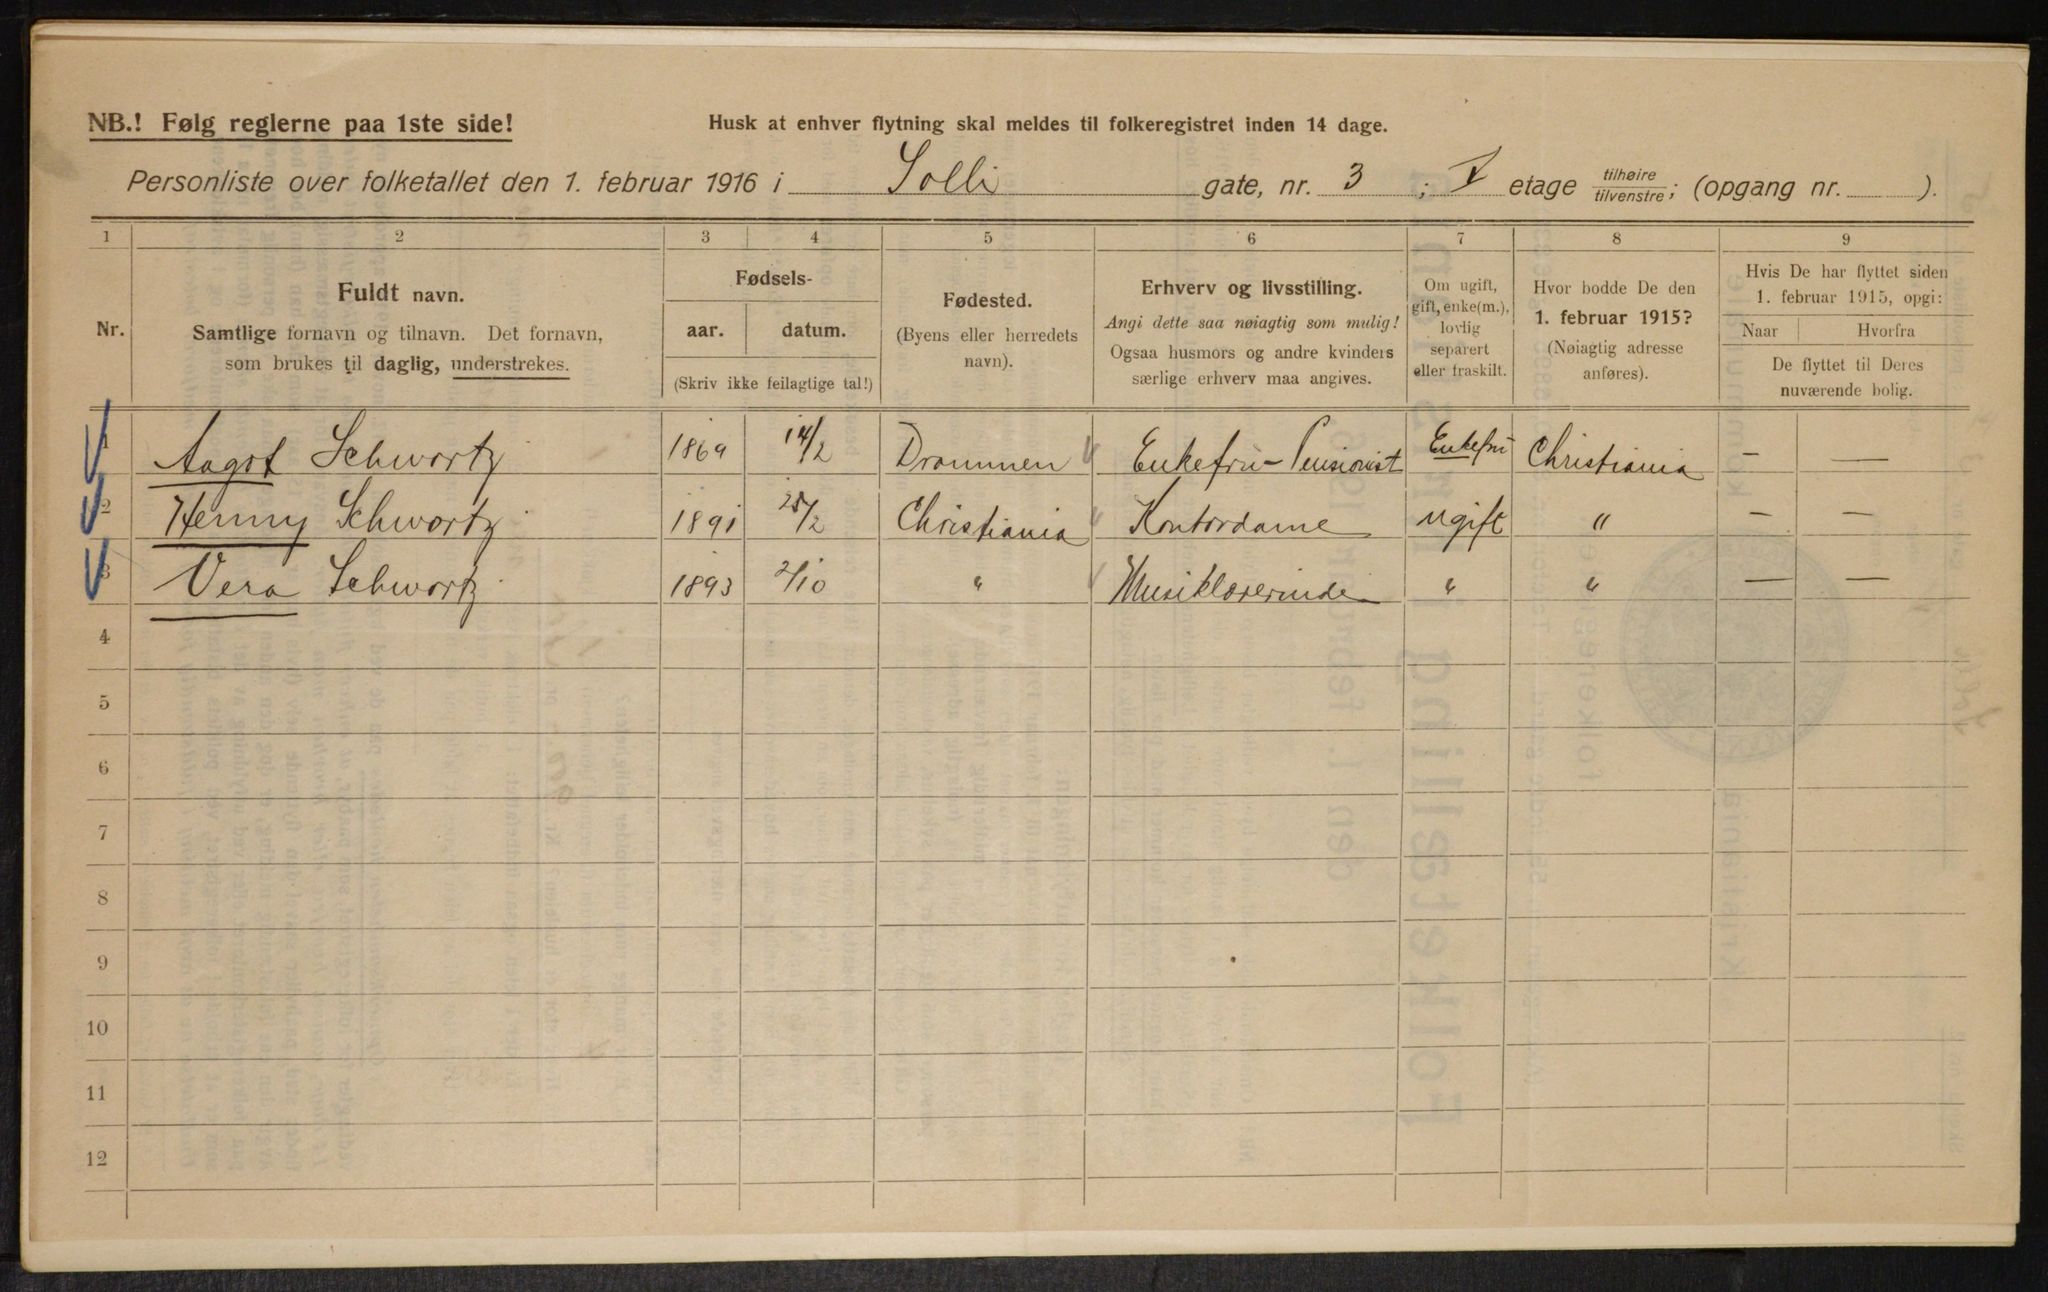 NB.! Følg reglerne paa 1ste side!
Husk at enhver flytning skal meldes til folkeregistret inden 14 dage.
Personliste over folketallet den 1. februar 1916 i Solli gate, nr. 3 ; I etage tilhøire/tilvenstre; (opgang nr. ).
1 2 3 4 5 6 7 8 9
Nr.
Fuldt navn.
Samtlige fornavn og tilnavn. Det fornavn,
som brukes til daglig, understrekes.
Fødsels-
aar. datum.
(Skriv ikke feilagtige tal!)
Fødested.
(Byens eller herredets
navn).
Erhverv og livsstilling.
Angi dette saa nøiagtig som mulig!
Ogsaa husmors og andre kvinders
særlige erhverv maa angives.
Om ugift,
gift, enke(m.),
lovlig
separert
eller fraskilt.
Hvor bodde De den
1. februar 1915?
(Nøiagtig adresse
anføres).
Hvis De har flyttet siden
1. februar 1915, opgi:
Naar Hvorfra
De flyttet til Deres
nuværende bolig.
1 Aagot Schwartz 1869 14/2 Drammen Enkefru - Pensionist Enkefru Christiania — —
2 Henny Schwartz 1891 25/2 Christiania Kontordame ugift " — —
3 Vera Schwartz 1893 2/10 " Musiklærerinde " " — —
4
5
6
7
8
9
10
11
12